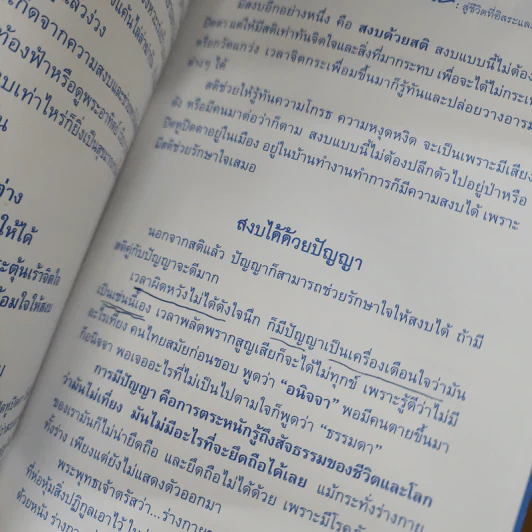 : สู่ชีวิตที่อิสระและ
มีสงบอีกอย่างหนึ่ง คือ สงบด้วยสติ สงบแบบนี้ไม่ต้อง
ปิดตา แต่ให้มีสติเท่าทันจิตใจและสิ่งที่มากระทบ เพื่อจะได้ไม่กระเ
หรือกวัดแกว่ง เวลาจิตกระเพื่อมขึ้นมาก็รู้ทันและปล่อยวางอารม
ต่างๆ ได้
สติช่วยให้รู้ทันความโกรธ ความหงุดหงิด จะเป็นเพราะมีเสียง
ดัง หรือมีคนมาต่อว่าก็ตาม สงบแบบนี้ไม่ต้องปลีกตัวไปอยู่ป่าหรือ
ปิดหูปิดตาอยู่ในเมือง อยู่ในบ้านทำงานทำการก็มีความสงบได้ เพราะ
มีสติช่วยรักษาใจเสมอ
สงบได้ด้วยปัญญา
นอกจากสติแล้ว ปัญญาก็สามารถช่วยรักษาใจให้สงบได้ ถ้ามี
สติคู่กับปัญญาจะดีมาก
เวลาผิดหวังไม่ได้ดังใจนึก ก็มีปัญญาเป็นเครื่องเตือนใจว่ามัน
เป็นเช่นนี้เอง เวลาพลัดพรากสูญเสียก็จะได้ไม่ทุกข์ เพราะรู้ดีว่าไม่มี
อะไรเที่ยง คนไทยสมัยก่อนชอบ พูดว่า “อนิจจา” พอมีคนตายขึ้นมา
ก็อนิจจา พอเจออะไรที่ไม่เป็นไปตามใจก็พูดว่า “ธรรมดา”
การมีปัญญา คือการตระหนักรู้ถึงสัจธรรมของชีวิตและโลก
ว่ามันไม่เที่ยง มันไม่มีอะไรที่จะยึดถือได้เลย แม้กระทั่งร่างกาย
ของเรามันก็ไม่น่ายึดถือ และยึดถือไม่ได้ด้วย เพราะมีโรค
ทั้งร่าง เพียงแต่ยังไม่แสดงตัวออกมา
พระพุทธเจ้าตรัสว่า...ร่างกาย
ที่ห่อหุ้มสิ่งปฏิกูลเอาไว้
ด้วยหนัง
เกิดจากความสงบและ
ท้องฟ้าหรือดูพระอาทิตย์
บเท่าไหร่ก็ยิ่งเป็นสุข
น
่าง
ให้ได้
ระตุ้นเร้าจิตใจ
้อมใจให้สงบ